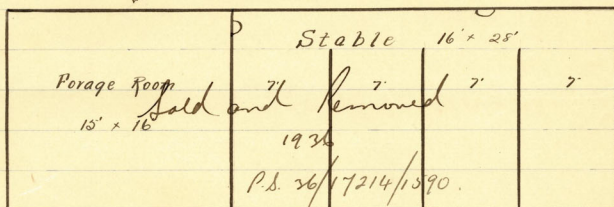 Stable 16' x 28'
Forage Room 7' 7' 7' 7'
Sold and Removed
15' x 16'
1936
P.S. 36/17214/1590.